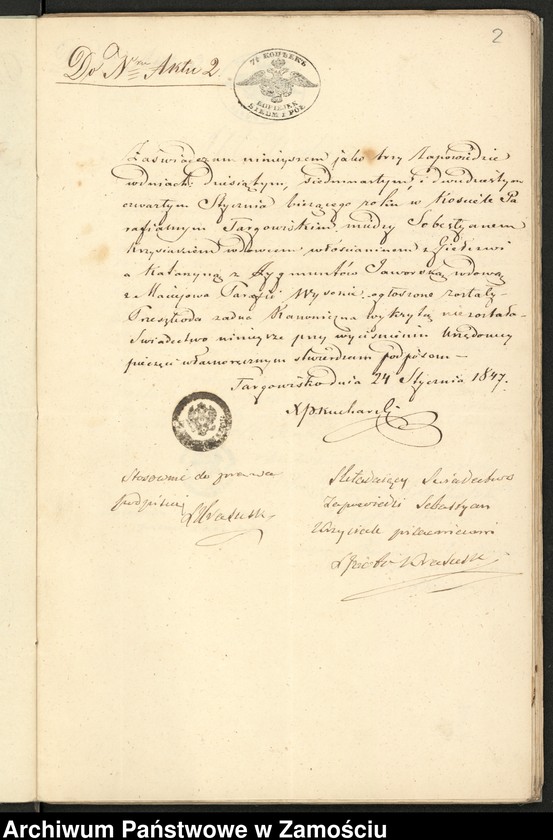 2
Do Nru Aktu 2.
7½ КОПѢЕКЪ
KOPIEIEK
Zaświadczam niniejszem jako trzy Zapowiedzie
w dniach: dziesiątym, siedmnastym, i dwudziestym
czwartym Stycznia bieżącego roku w Kościele Pa
rafialnym Targowiskim między Sobestyanem
wdowcem włościaninem z
a Katarzyną z Zygmuntów Jaworską wdową
z Maciejowa Parafii Wysokie ogłoszone zostały
Przeszkoda żadna Kanoniczna wykrytą niezostała
Świadectwo niniejsze przy wyciśnieniu Urzędowey
pieczęci własnoręcznym stwierdzam podpisem —
Targowisko dnia 24 Stycznia 1847.
X P Kucharski
Stosownie do prawa
podpisuję
Składający Świadectwo
Zapowiedzi Sebastyan
Archiwum Państwowe w Zamościu